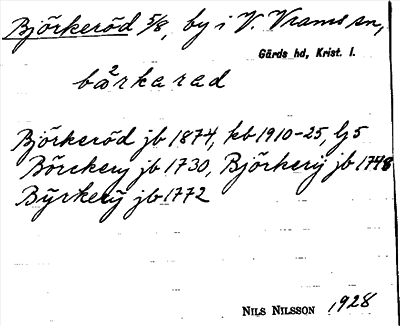 Björkeröd 5/8, by i V. Vrams sn,
Gärds hd, Krist. l.
bœ²rkarad
Björkeröd jb 1874, kb 1910-25, lj 5
Börckerÿ jb 1730, Björkerÿ jb 1748
Bÿrkerÿ jb 1772
NILS NILSSON 1928